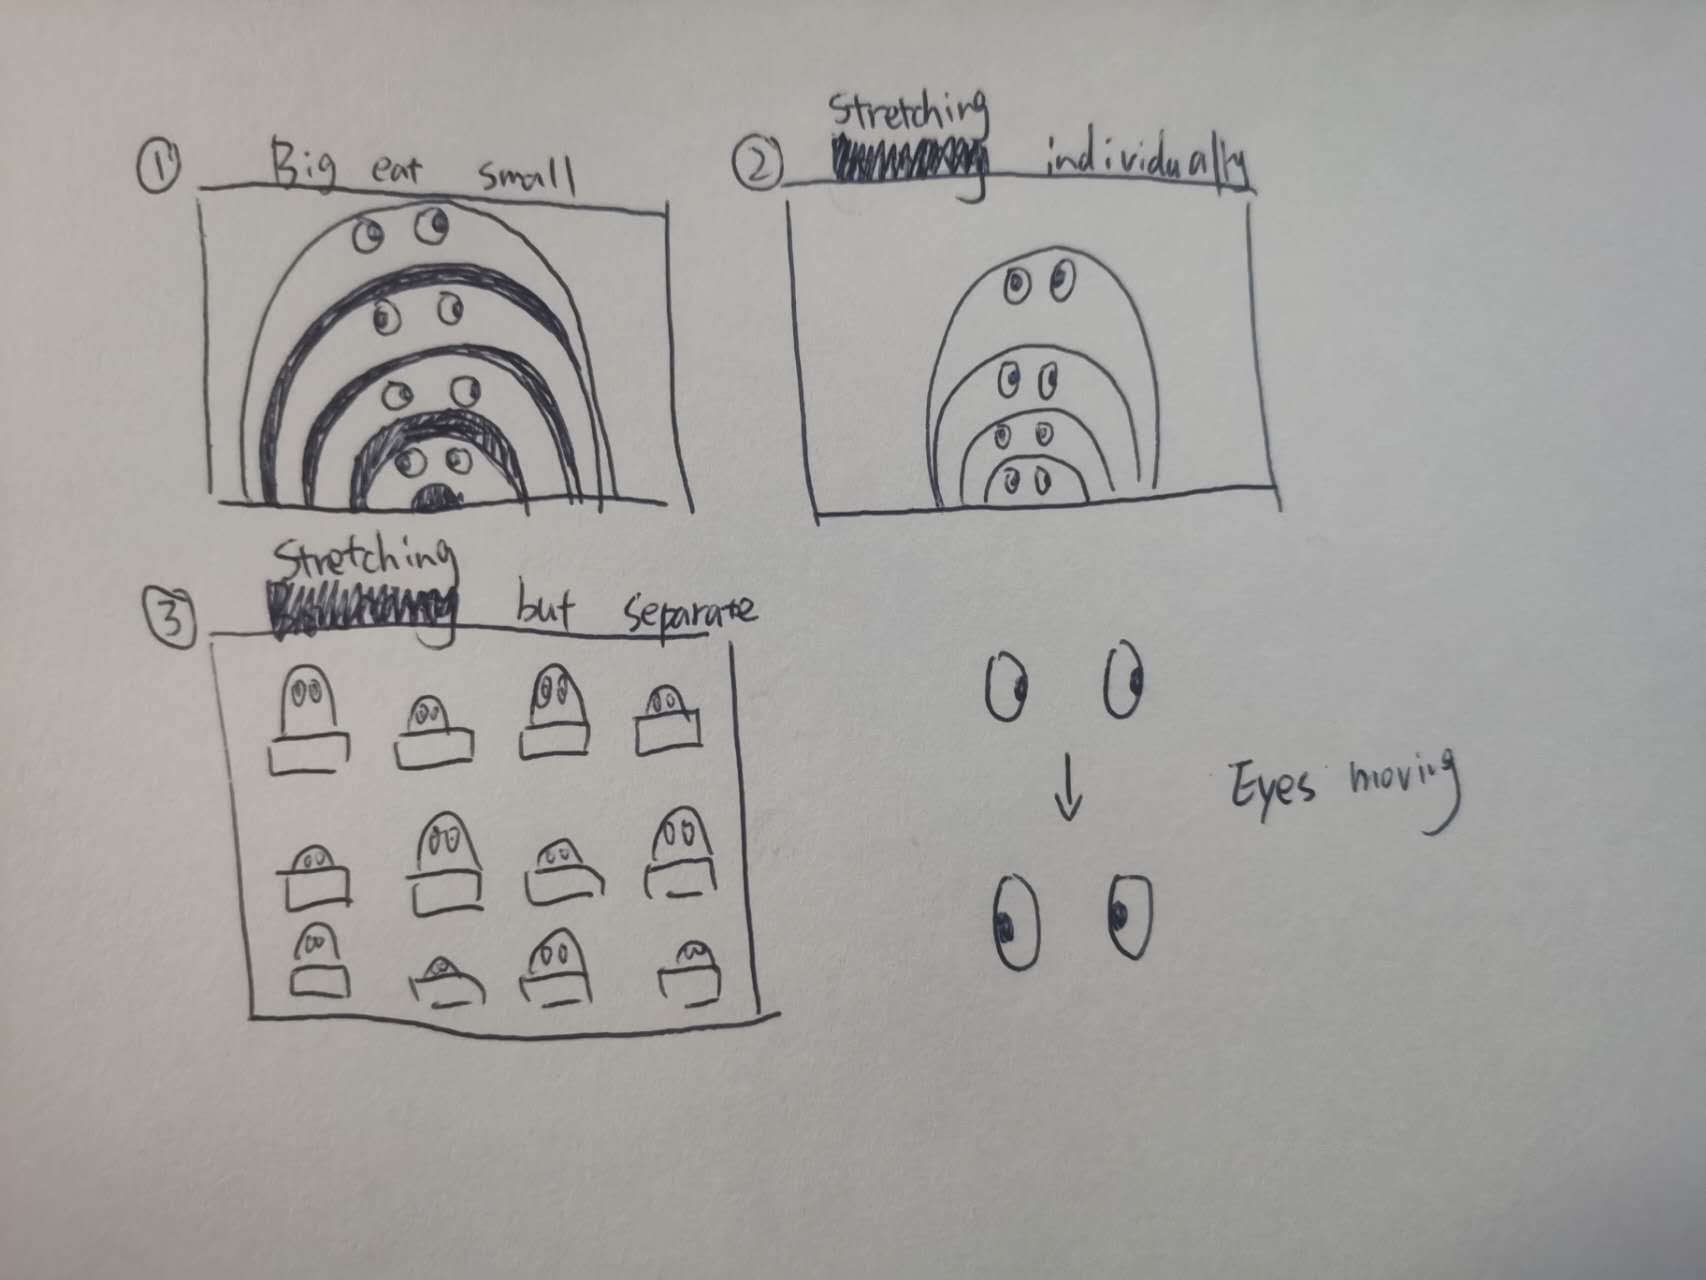 ① Big eat small
② Stretching individually
③ Stretching but separate
Eyes moving